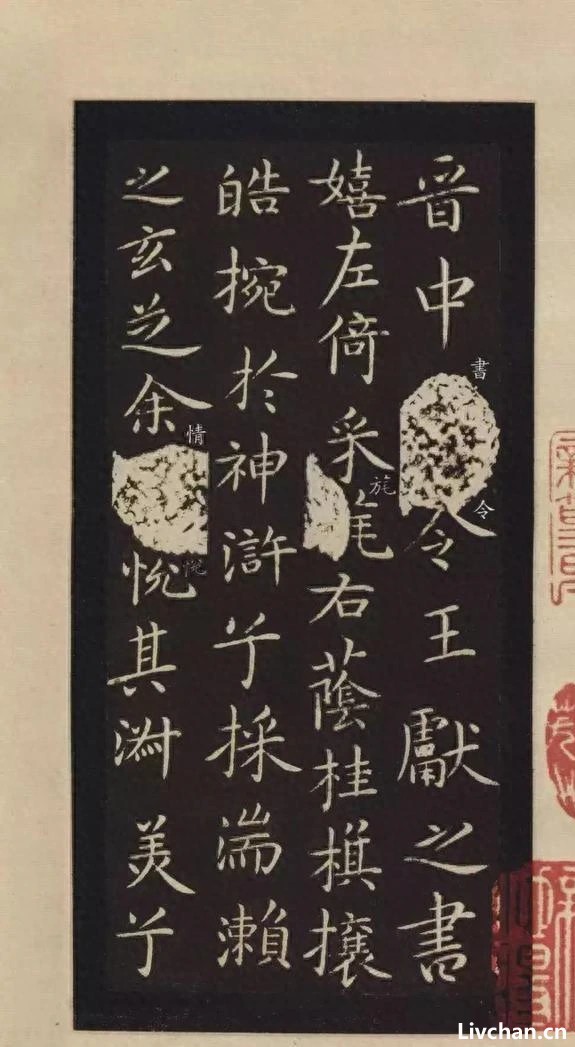 晋中書令王獻之書
嬉左倚采旄右蔭桂棋攘
皓捥於神滸兮採湍瀨
之玄芝余情悅其淑美兮
Livchan.cn